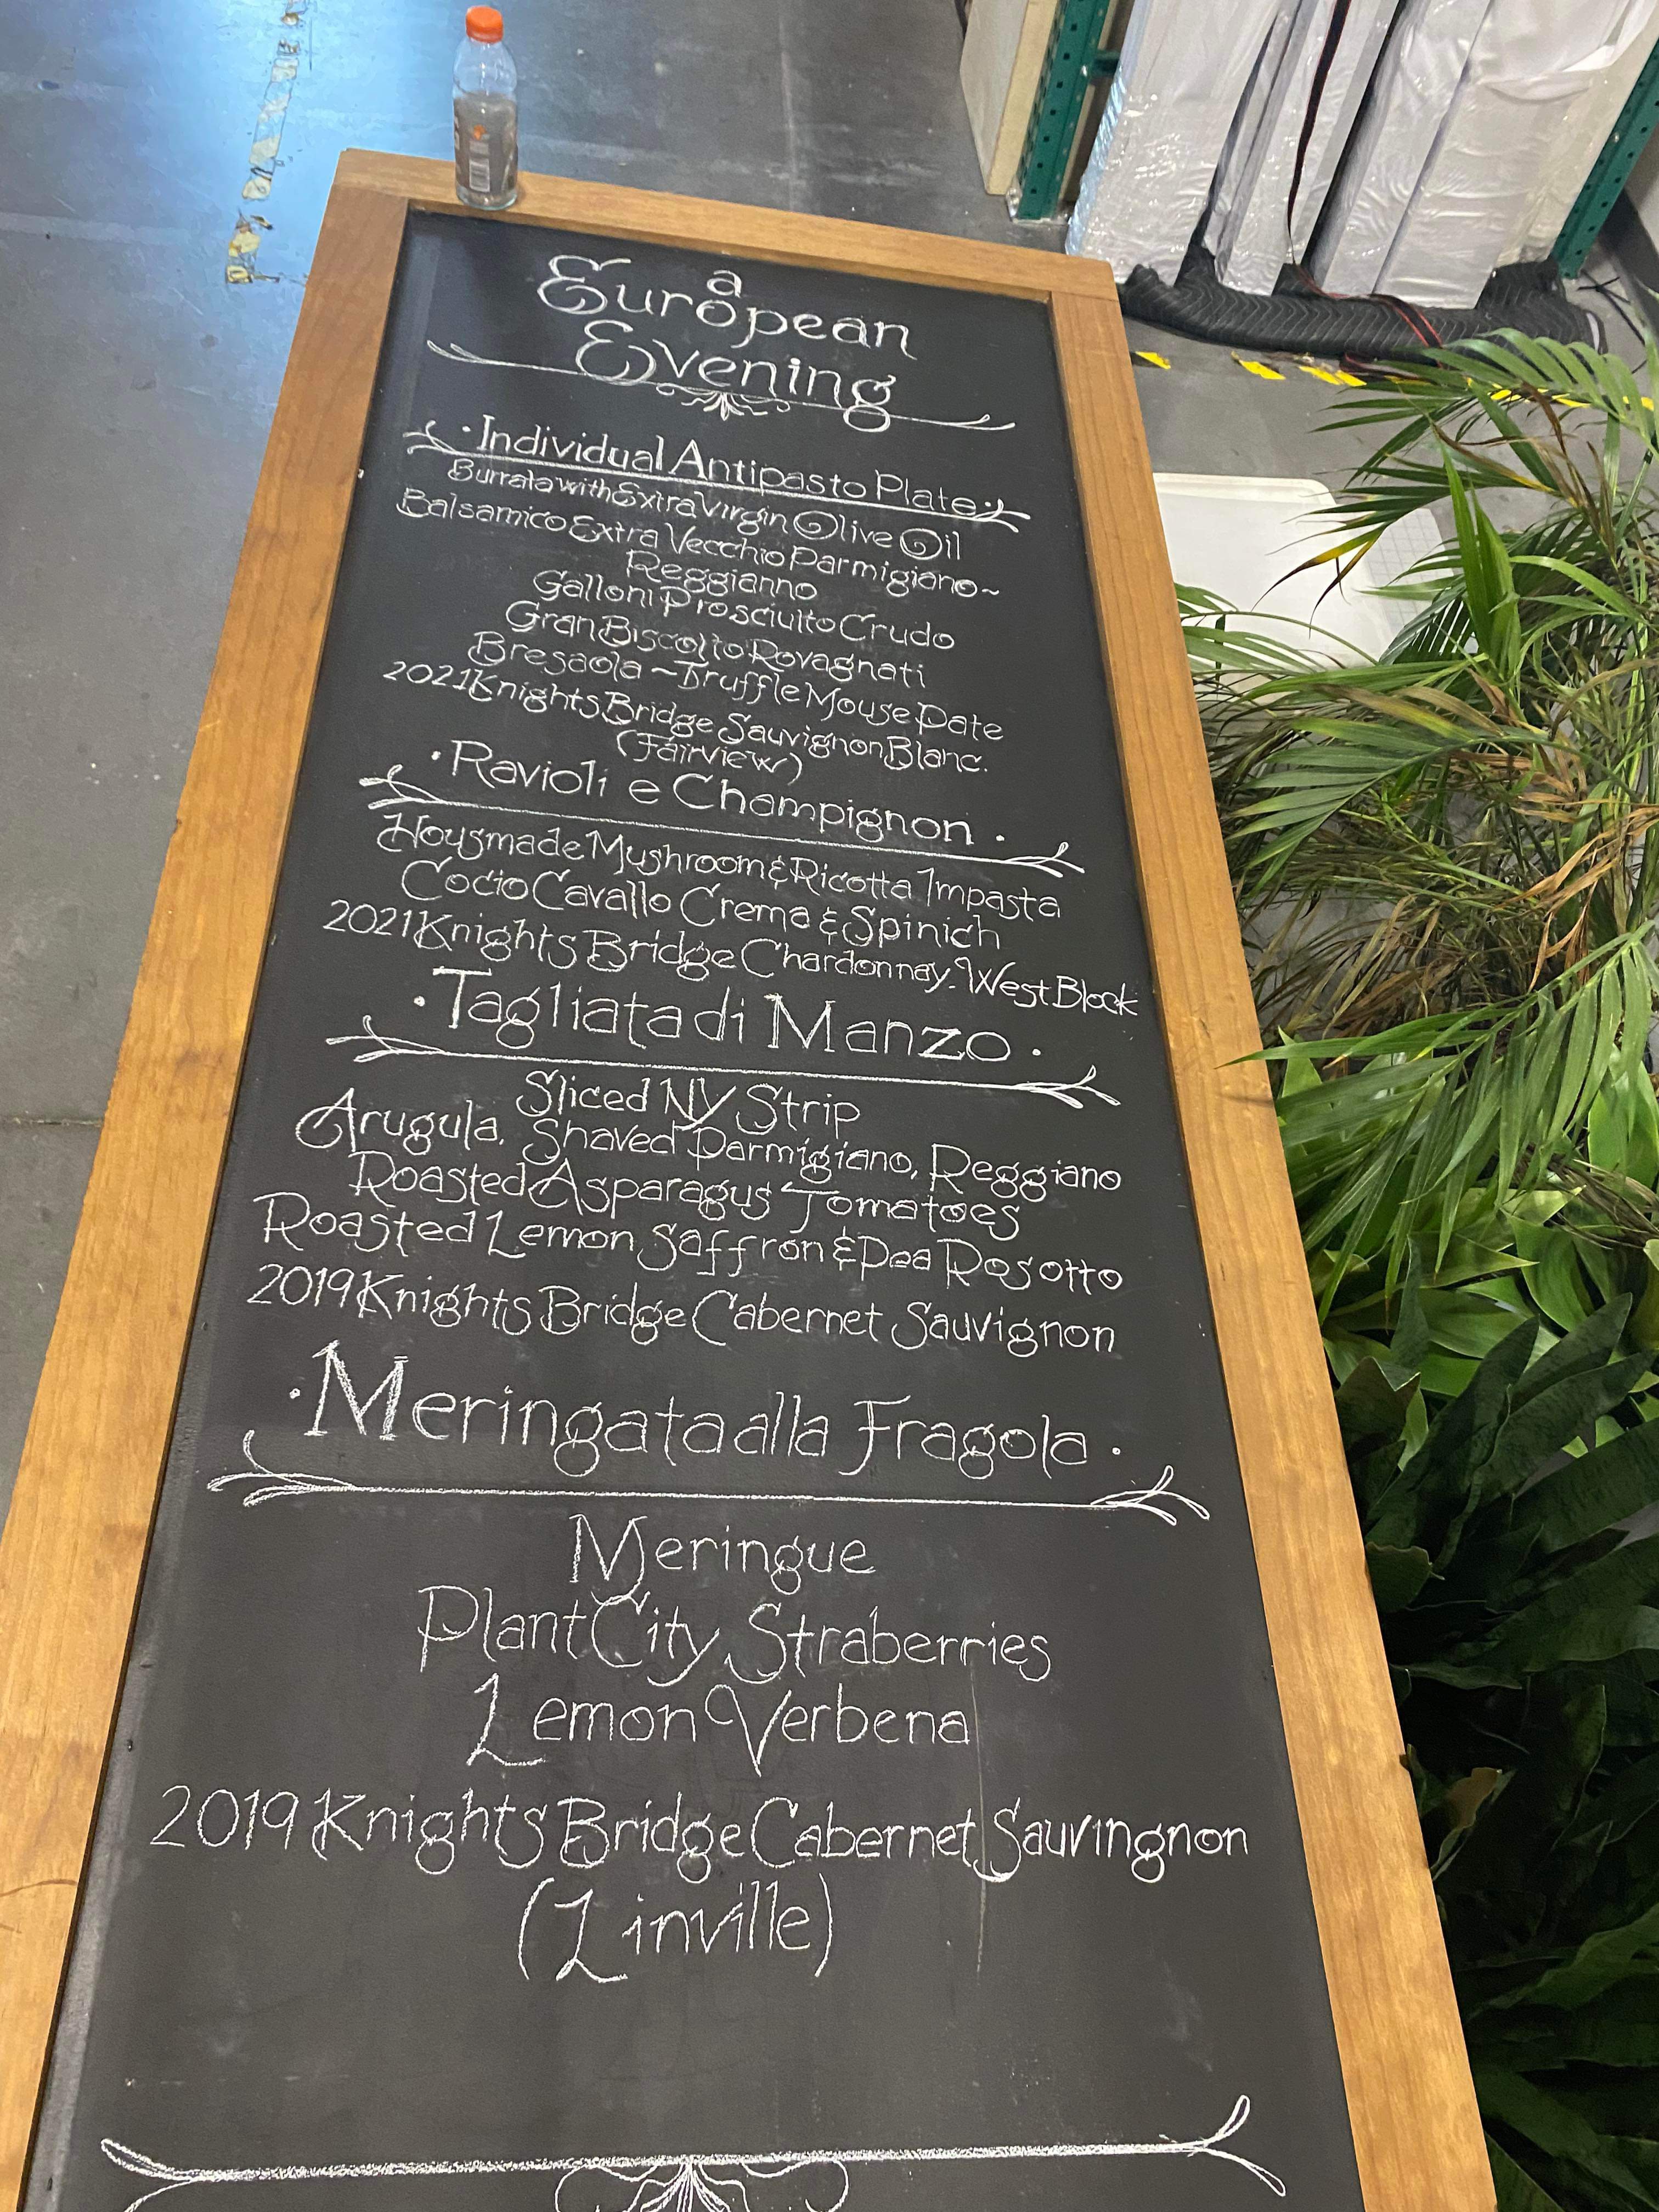 a
European
Evening
· Individual Antipasto Plate ·
Burrata with Extra Virgin Olive Oil
Balsamico Extra Vecchio Parmigiano~
Reggianno
Galloni Prosciutto Crudo
Gran Biscotto Rovagnati
Bresaola ~ Truffle Mouse Pate
2021 Knights Bridge Sauvignon Blanc.
(Fairview)
· Ravioli e Champignon ·
Housmade Mushroom & Ricotta Impasta
Cocio Cavallo Crema & Spinich
2021 Knights Bridge Chardonnay. West Block
· Tagliata di Manzo ·
Sliced NY Strip
Arugula, Shaved Parmigiano, Reggiano
Roasted Asparagus Tomatoes
Roasted Lemon Saffron & Pea Rosotto
2019 Knights Bridge Cabernet Sauvignon
· Meringata alla Fragola ·
Meringue
Plant City Straberries
Lemon Verbena
2019 Knights Bridge Cabernet Sauvingnon
(Linville)